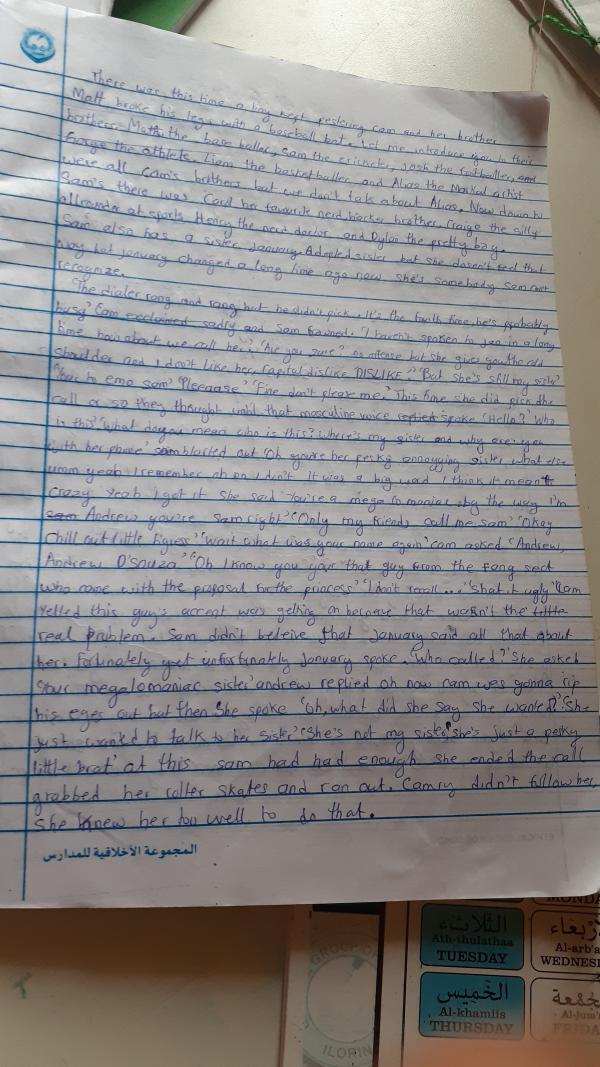 There was this time a boy kept pestering cam and her brother
Matt broke his legs with a baseball bat. Let me introduce you to their
brothers. Matt the base baller, Cam the cricketer, Josh the footballer, and
Graige the athlete, Liam the basketballer and Alias the Maskal artist
were all Cam's brothers but we don't talk about Alias. Now down to
Sam's there was Card her favourite nerd, brother, Craige the silly
allrounder at sports, Henry the nerd doctor and Dylan the pretty boy.
Sam also has a sister January. Adopted sister but she doesn't feel that
way but January changed a long time ago now she's somebody Sam can't
recognize.
The dialer rang and rang but he didn't pick. It's the fourth time, he's probably
busy' Cam exclaimed sadly and Sam frowned. 'I haven't spoken to Jan in a long
time, how about we call her?' 'Are you sure? no offense but she gives you the cold
shoulder and I don't like her, Capital dislike DISLIKE.' 'But she's still my sister'
'back to emo Sam' 'Pleeaase' 'Fine don't please me.' This time she did pick the
call or so they thought until that masculine voice spoke 'Hello?' 'Who
is this' 'What do you mean who is this? Where's my sister and why are you
with her phone' Sam blasted out 'Oh you're her pesky annoyying sister, what else
umm yeah I remember oh no I didn't It was a big word I think it meant
crazy Yeah I get it she said You're a mega lo maniac .by the way I'm
Andrew you're Sam right' 'Only my friends call me Sam' 'Okay
chill out little tigress' 'Wait what was your name again' Cam asked 'Andrew,
Andrew D'souza' 'Oh I know you your that guy from the fang sect
who came with the proposal for the princess' 'I don't recall...' 'Shat it ugly' Cam
yelled this guy's accent was getting on because that wasn't the little
real problem. Sam didn't beleive that January said all that about
her. Fortunately yet unfortunately January spoke. 'Who called?' She asked
'Your megalomaniac sister' andrew replied oh now cam was gonna rip
his eyes out but then she spoke 'oh, what did she say she wanted?' 'She
just wanted to talk to her sister' 'She's not my sister she's just a pesky
little brat' at this Sam had had enough she ended the call
grabbed her roller skates and ran out. Camry didn't follow her,
She knew her too well to do that.
المجموعة الأخلاقية للمدارس
MONDA
الثلاثاء
Ath-thulathaa
TUESDAY
الأربعاء
Al-arb'a
WEDNESD
الخميس
Al-khamiis
THURSDAY
الجمعة
Al-jum'
FRIDA
GROUP OF
ILORIN